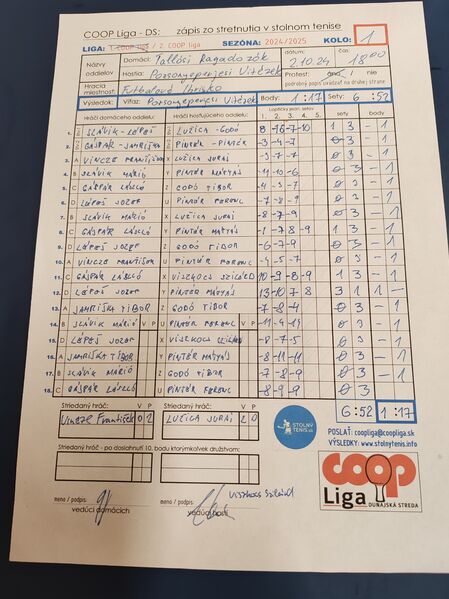 COOP Liga - DS: zápis zo stretnutia v stolnom tenise
LIGA: 1. COOP liga / 2. COOP liga SEZÓNA: 2024/2025 KOLO: 1
Názvy oddielov Domáci: Tallósi Ragadozók dátum: 2.10.24 čas: 18 00
Hostia: Pozsonyeperjesi Vitézek Protest: áno / nie
podrobný popis uviadzať na druhej strane
Hracia miestnosť: Futbalové Ihrisko
Výsledok: Víťaz: Pozsonyeperjesi Vitézek Body: 1:17 Sety: 6:52
Hráči domáceho oddielu: Hráči hosťujúceho oddielu: Loptičky jedn. setov sety body
1. SLÁVIK-LÉPEŠ LUŽICA-GODÓ 8 -16 -7 -10 1 3 - 1
2. GAŠPÁR-JAHRIŠKA PINTÉR-PINTÉR -3 -4 -7 0 3 - 1
3. A VINCZE FRANTIŠEK X LUŽICA JURAJ -3 -7 -7 0 3 - 1
4. B SLÁVIK MÁRIÓ Y PINTÉR MÁTYÁS 0 3 - 1
5. C GAŠPÁR LÁSZLÓ Z GODÓ TIBOR -4 -3 -7 0 3 - 1
6. D LÉPEŠ JOZEF U PINTÉR FERENC -8 0 3 - 1
7. B SLÁVIK MÁRIÓ X LUŽICA JURAJ -8 -7 -9 0 3 - 1
8. C GAŠPÁR LÁSZLÓ Y PINTÉR MÁTYÁS 1 3 - 1
9. D LÉPEŠ JOZEF Z GODÓ TIBOR -6 -7 -9 0 3 - 1
10. A VINCZE FRANTIŠEK U PINTÉR FERENC -4 -5 -7 0 3 - 1
11. C GAŠPÁR LÁSZLÓ X VISZKOCS SZILÁRD 1 3 - 1
12. D LÉPEŠ JOZEF Y PINTÉR MÁTYÁS 3 1 1 -
13. A JAHRIŠKA TIBOR Z GODÓ TIBOR -7 -8 -7 0 3 - 1
14. B SLÁVIK MÁRIÓ V P U PINTÉR FERENC V P 1 3 - 1
15. D LÉPEŠ JOZEF X VISZKOCS SZILÁRD -8 -7 -5 0 3 - 1
16. A JAHRIŠKA TIBOR Y PINTÉR MÁTYÁS -8 -11 -11 0 3 - 1
17. B SLÁVIK MÁRIÓ Z GODÓ TIBOR -7 -8 -9 0 3 - 1
18. C GAŠPÁR LÁSZLÓ U PINTÉR FERENC -8 -9 -9 0 3 - 1
Striedaný hráč: V P Striedaný hráč: V P 6:52 1:17
Vincze František 0 2 LUŽICA JURAJ 2 0
STOLNÝ TENIS.sk
POSLAŤ: coopliga@coopliga.sk
VÝSLEDKY: www.stolnytenis.info
Striedaný hráč - po dosiahnutí 10. bodu ktorýmkoľvek družstvom.
coop
Liga
DUNAJSKÁ STREDA
meno / podpis: meno / podpis: Viszkocs Szilárd
vedúci domácich vedúci hostí